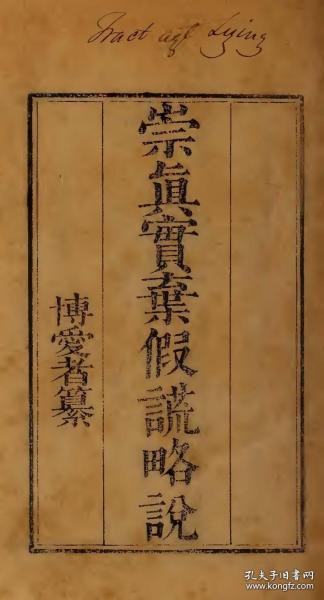 Tract agt Lying
崇眞實棄假謊略說
博愛者纂
孔夫子旧书网
www.kongfz.com